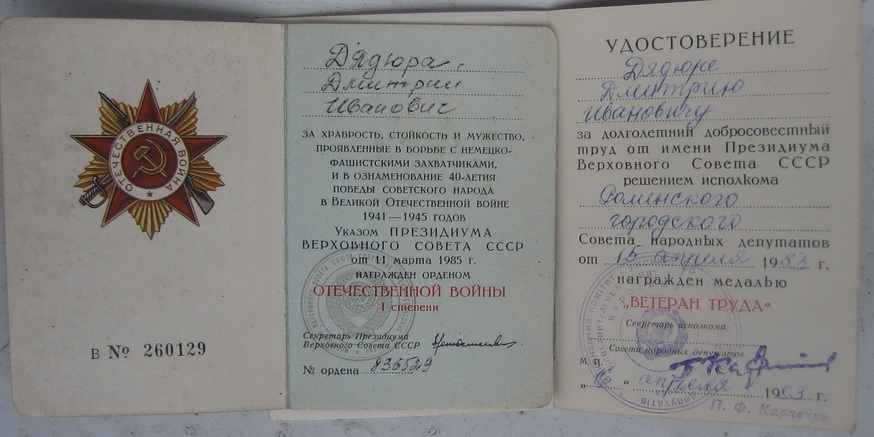 ОТЕЧЕСТВЕННАЯ ВОЙНА
В № 260129
Дядюра
Дмитрий
Иванович
ЗА ХРАБРОСТЬ, СТОЙКОСТЬ И МУЖЕСТВО,
ПРОЯВЛЕННЫЕ В БОРЬБЕ С НЕМЕЦКО-
ФАШИСТСКИМИ ЗАХВАТЧИКАМИ,
И В ОЗНАМЕНОВАНИЕ 40-ЛЕТИЯ
ПОБЕДЫ СОВЕТСКОГО НАРОДА
В ВЕЛИКОЙ ОТЕЧЕСТВЕННОЙ ВОЙНЕ
1941—1945 ГОДОВ
УКАЗОМ ПРЕЗИДИУМА
ВЕРХОВНОГО СОВЕТА СССР
от 11 марта 1985 г.
НАГРАЖДЕН ОРДЕНОМ
ОТЕЧЕСТВЕННОЙ ВОЙНЫ
I степени
Секретарь Президиума
Верховного Совета СССР
№ ордена 836529
УДОСТОВЕРЕНИЕ
Дядюре
Дмитрию
Ивановичу
за долголетний добросовестный
труд от имени Президиума
Верховного Совета СССР
решением исполкома
Роменского
городского
Совета народных депутатов
от 15 апреля 1983 г.
награжден медалью
„ВЕТЕРАН ТРУДА“
Секретарь исполкома
Совета народных депутатов
М. П.
„ “ апреля 1983 г.
П. Ф. Карпенко